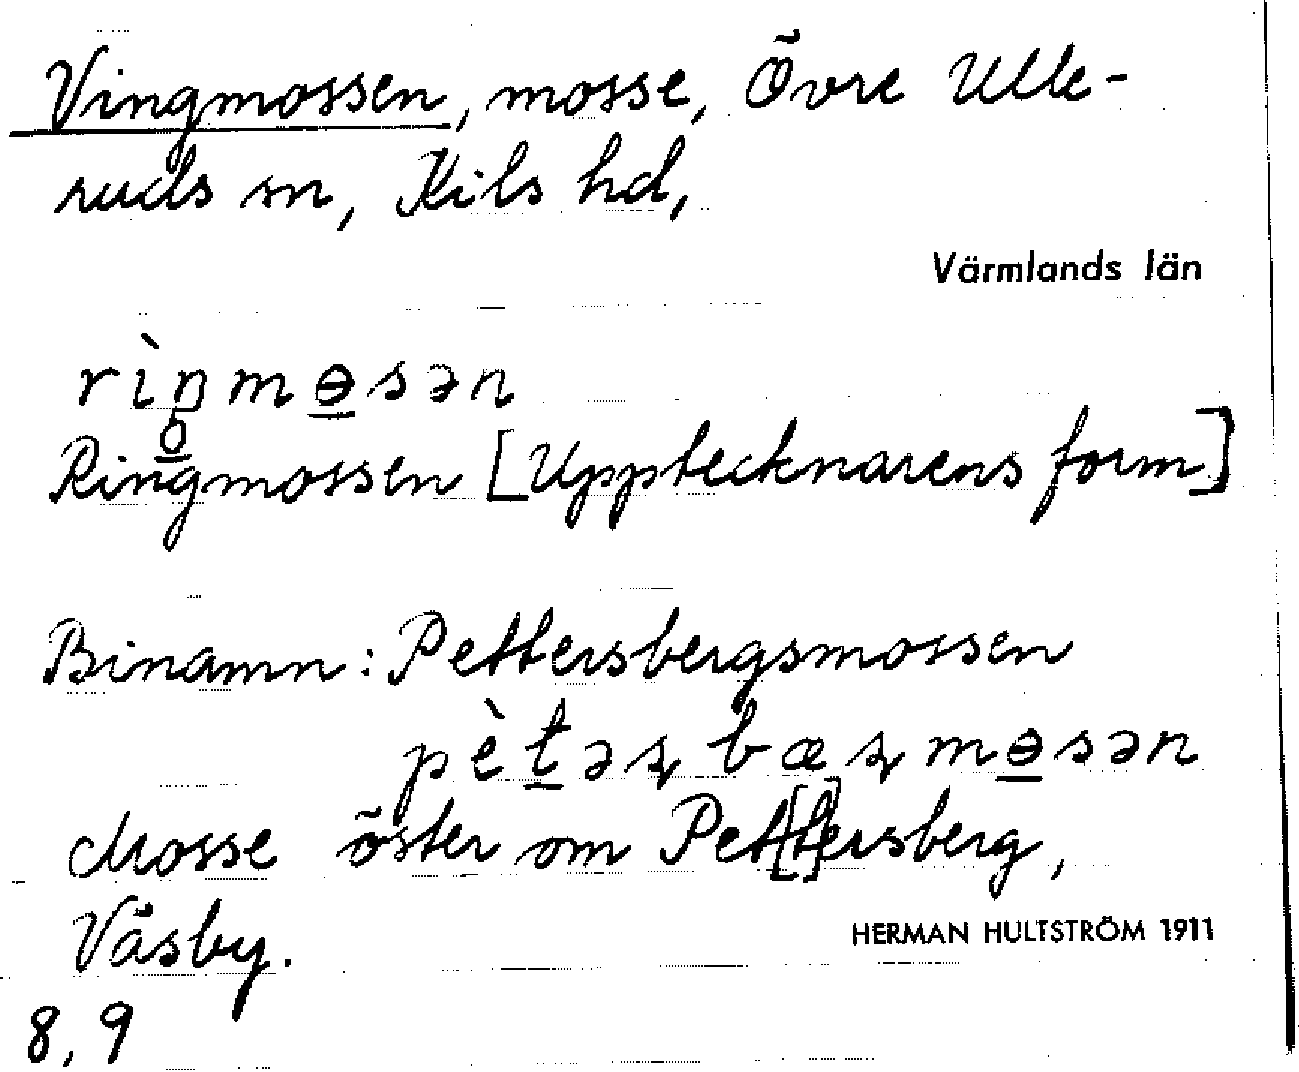 Vingmossen, mosse, Övre Ulle-
ruds sn, Kils hd,
Värmlands län
rìŋmɵ̲sən
Ringmossen [Upptecknarens form]
Binamn: Pettersbergsmossen
pèt̲əʂbæʂmɵ̲sən
Mosse öster om Pet[t]ersberg,
Väsby.
HERMAN HULTSTRÖM 1911
8, 9